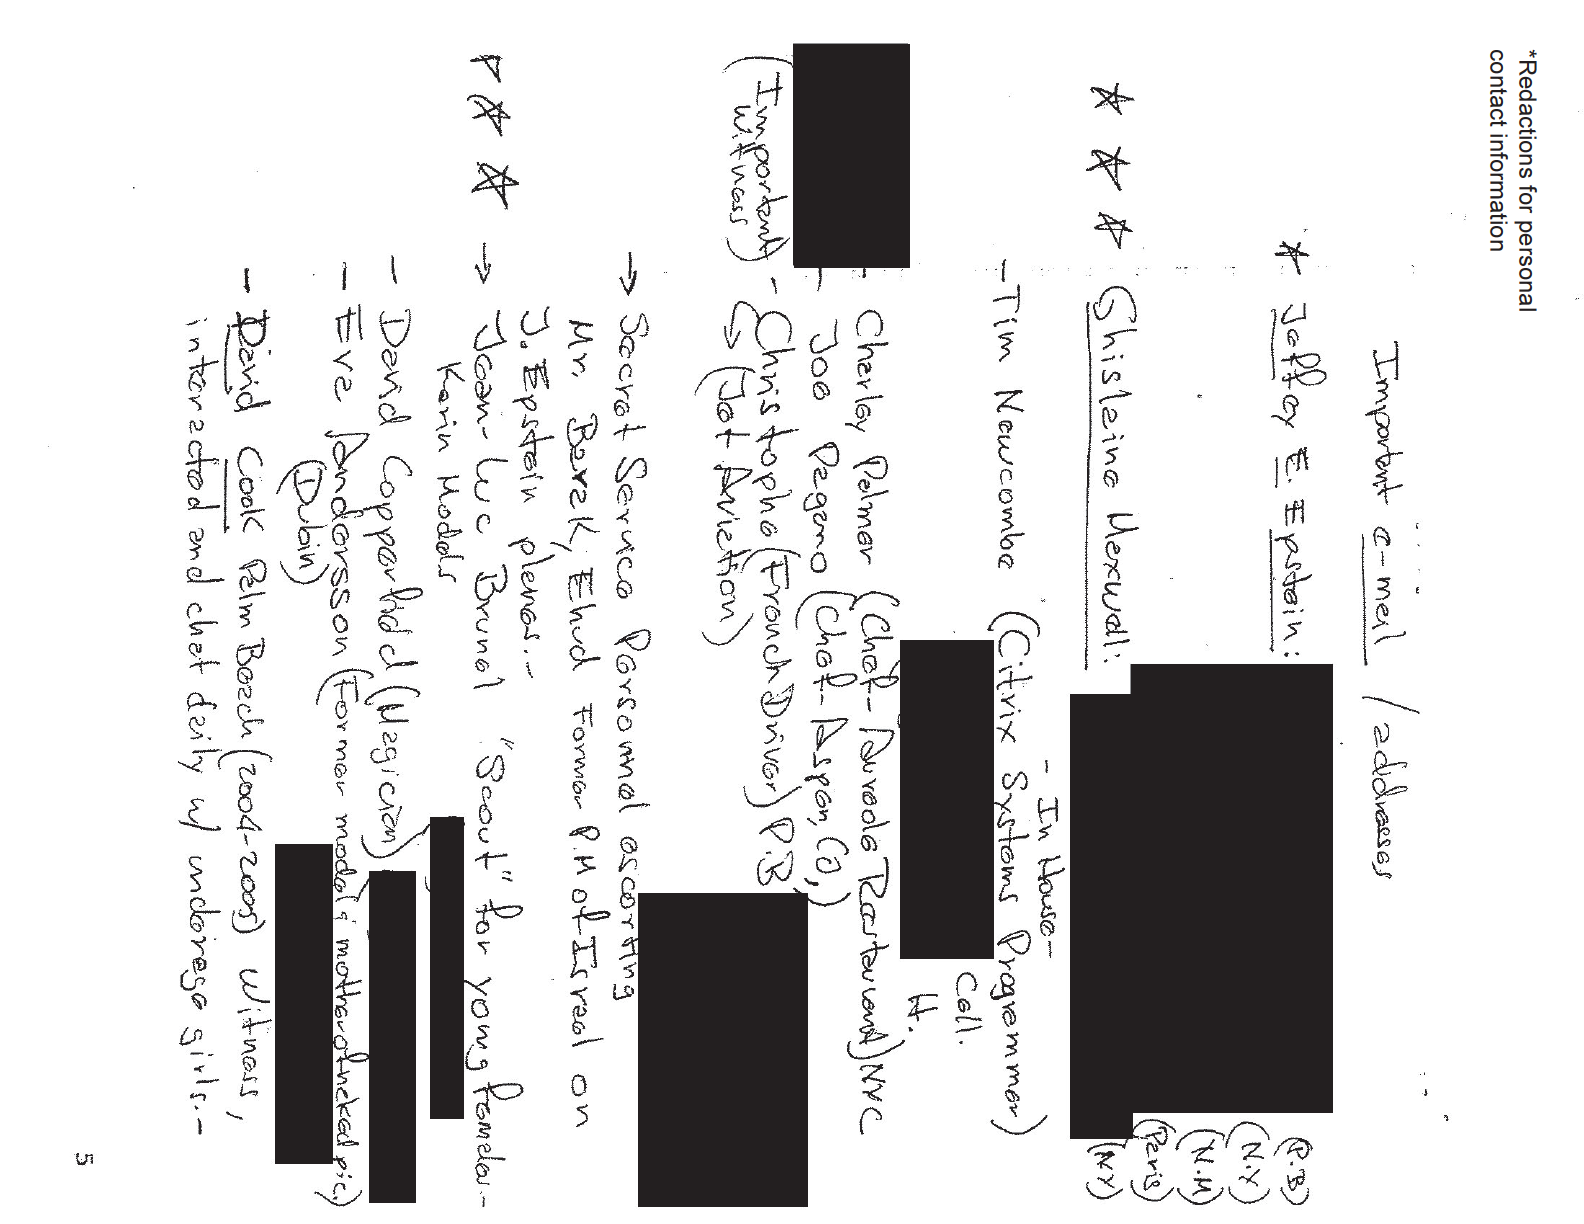 *Redactions for personal
contact information
Important e-mail / addresses
Jeffey E. Epstein:
(P.B)
(N.Y)
(N.M)
(Paris)
Ghislaine Maxwell:
(NY)
- In House-
- Tim Newcombe (Citrix Systems Programmer)
Cell.
H.
- Charley Palmer (Chef- Aureole Restaurant) NYC
- Joe Pagano (Chef- Aspen, CO,)
- Christophe (French Driver) P.B
(Jet Aviation)
(Important
Witness)
→ Secret Service Personnel escorting
Mr. Barak, Ehud Former P.M of Isreal on
J. Epstein planes.-
→ Jean-Luc Brunel "Scout" for young females-
Karin Models
- David Copperfield (Magician)
- Eva Andersson (Former model; mother of neked pic.)
(Dubin)
- David Cook Palm Beach (2004-2005) Witness,
interacted and chat daily w/ underage girls.-
5